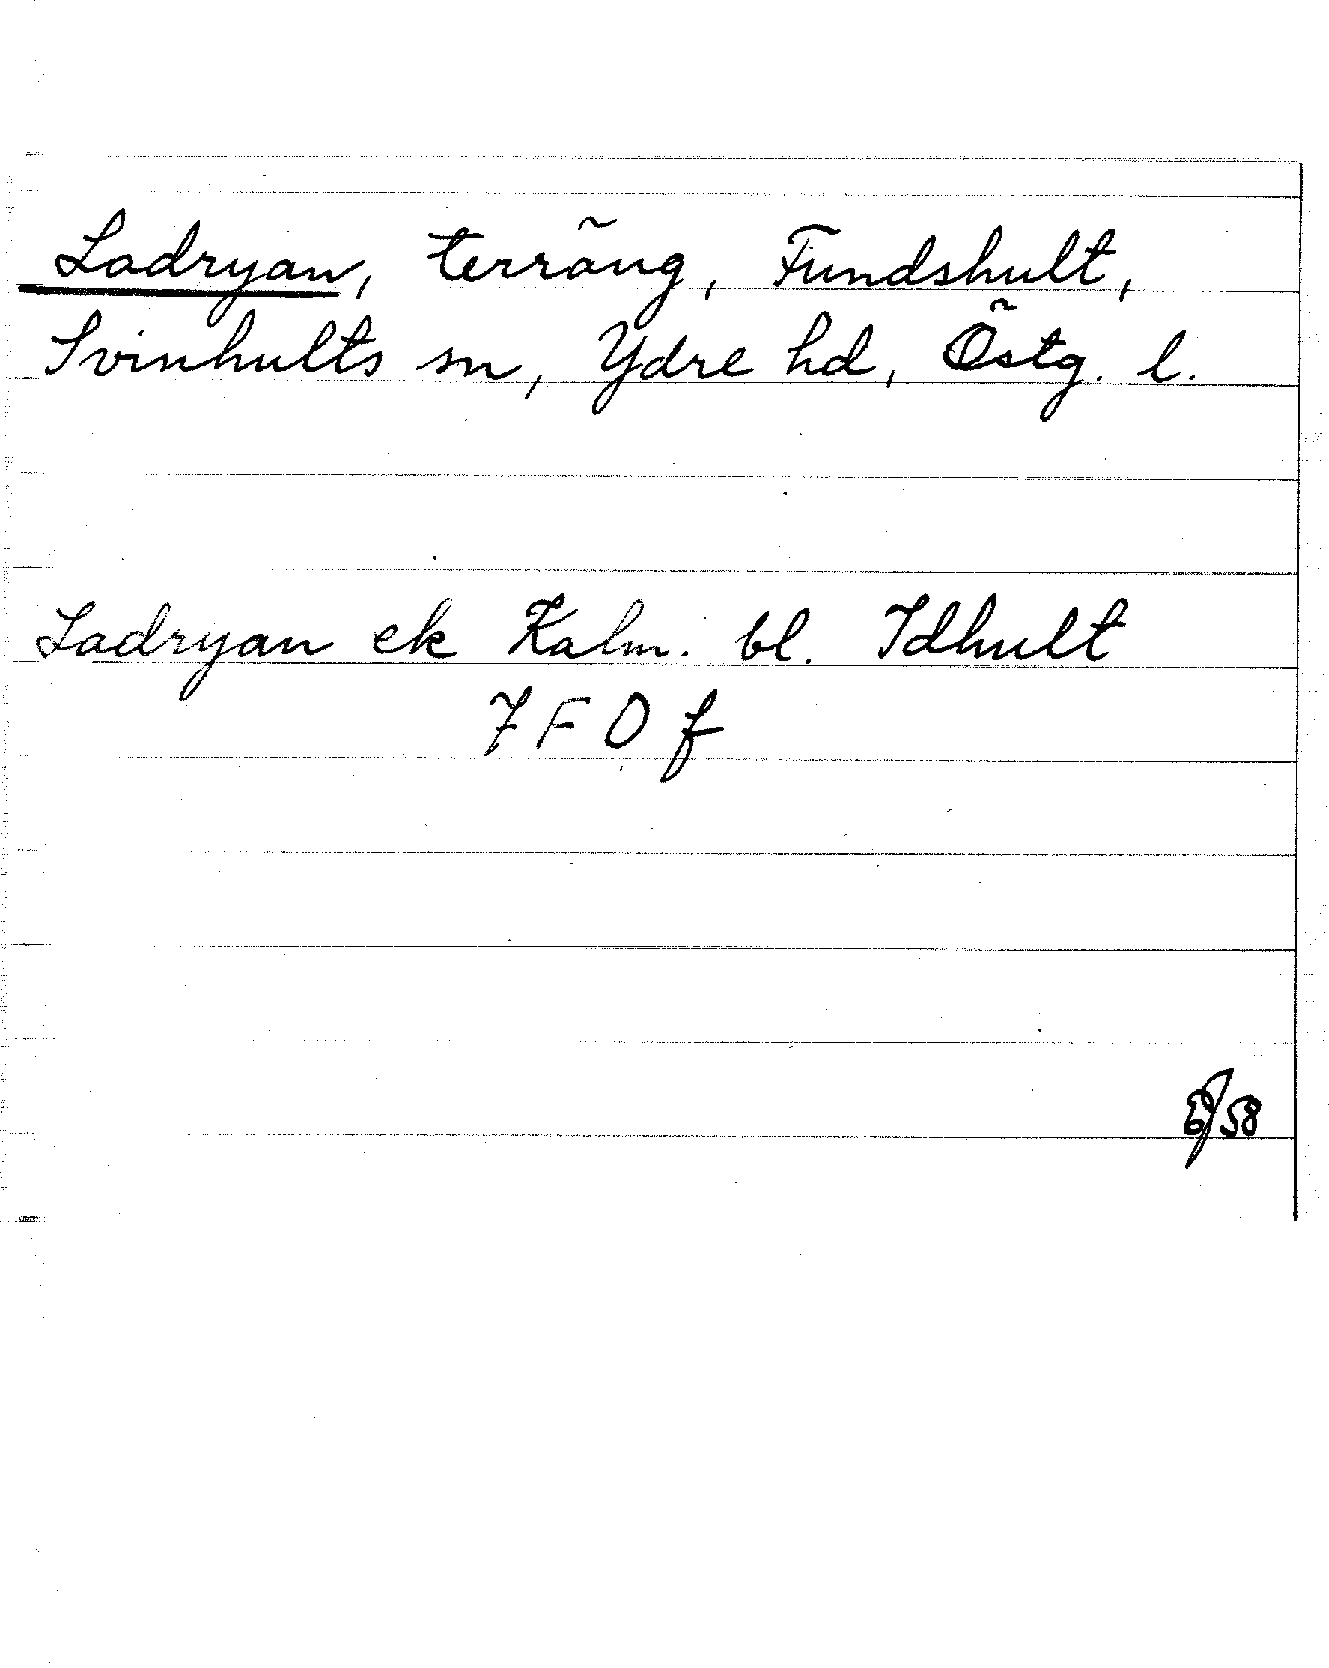 Ladryan, terräng, Fundshult,
Svinhults sn, Ydre hd, Östg. l.
Ladryan ek Kalm. bl. Idhult
7 F 0 f
/58